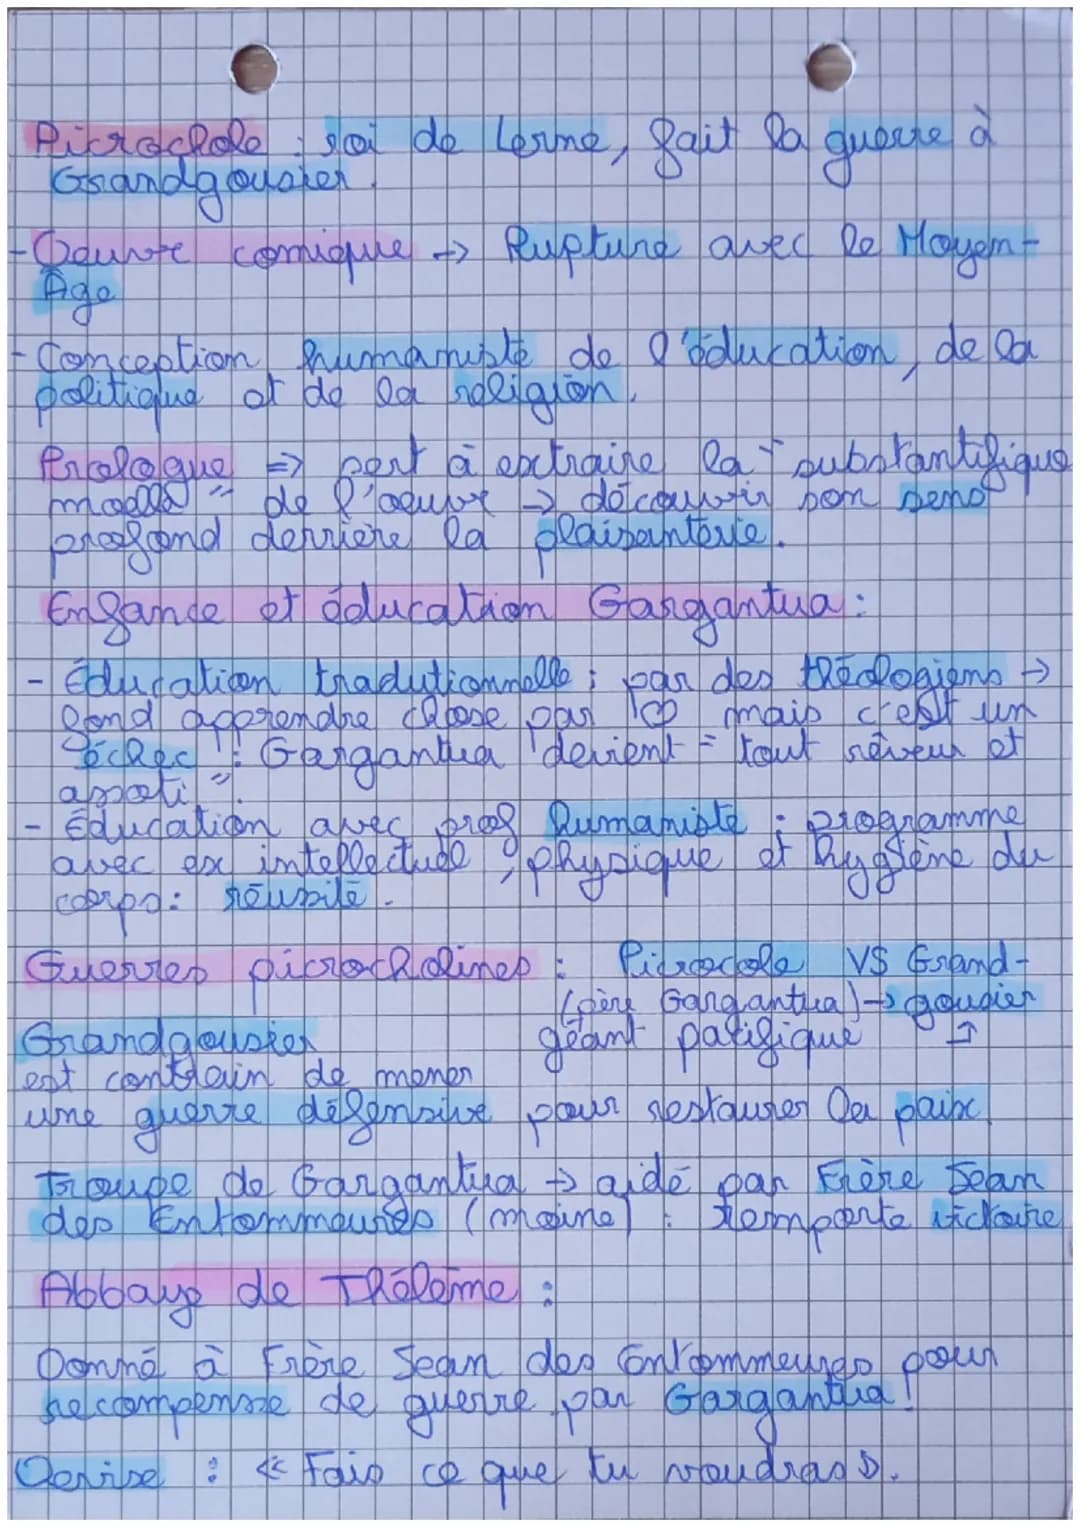 Picrochole : roi de Lerne, fait la guerre à
Grandgousier.
-Oeuvre comique -> Rupture avec le Moyen-
Âge
-Conception humaniste de l'éducation, de la
politique et de la religion.
Prologue => sert à extraire la "substantifique
moelle" de l'oeuvre -> découvrir son sens
profond derrière la plaisanterie.
Enfance et éducation Gargantua :
- Éducation tradutionnelle : par des théologiens ->
font apprendre chose par mais c'est un
échec : Gargantua devient "tout rêveur et
assoti".
- Éducation avec prof humaniste : programme
avec ex intellectuel, physique et hygiène du
corps : réusite.
Guerres picrocholines : Picrocole VS Grand-
(père Gargantua) -> gousier
Grandgousier géant pacifique
est contrain de mener
une guerre défensive pour restaurer la paix
Troupe de Gargantua -> aidé par Frère Jean
des Entommeures (moine) : remporte victoire
Abbaye de Thélème :
Donné à Frère Jean des Entommeures pour
recompense de guerre par Gargantua.
Devise : « Fais ce que tu voudras ».